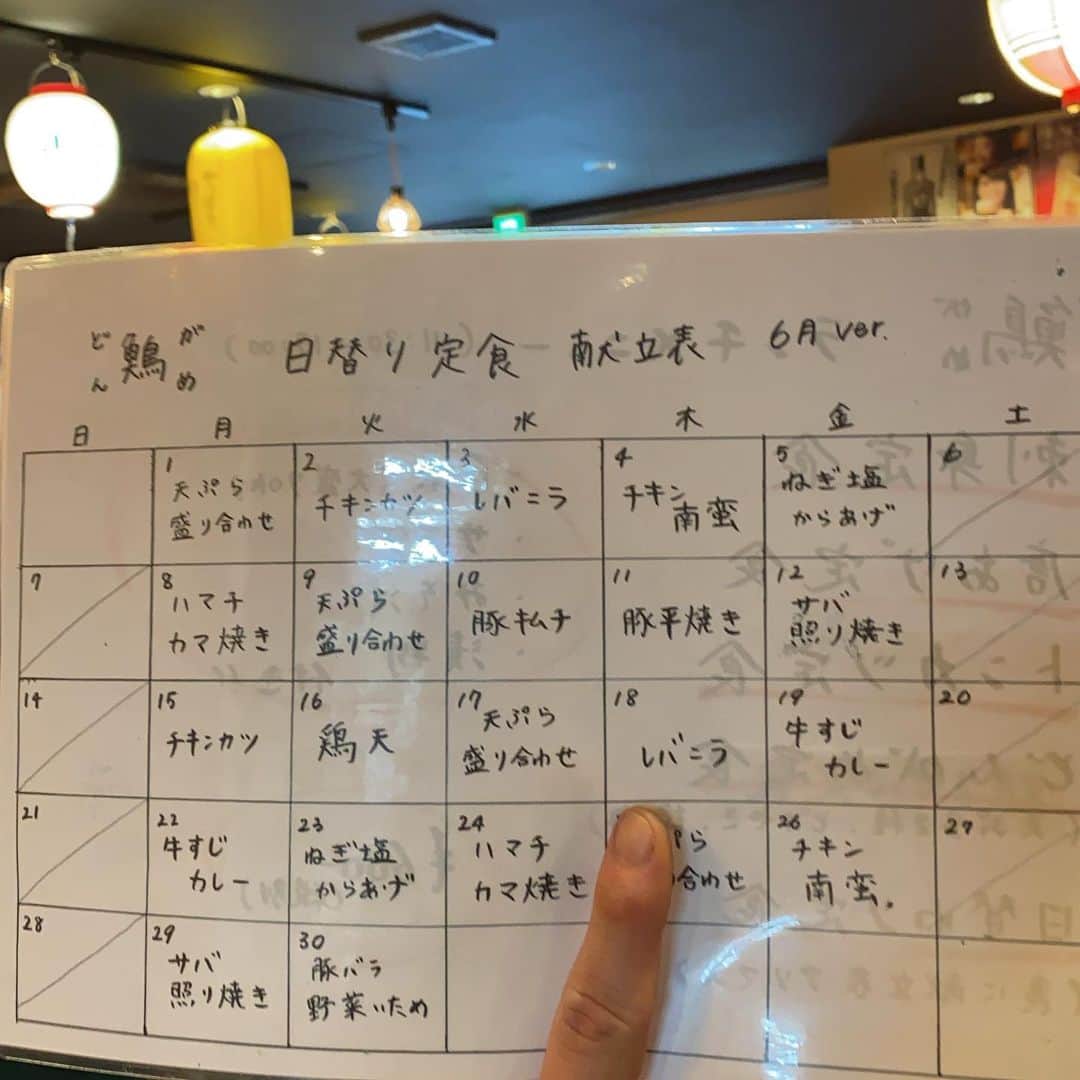 どん 鶏 がめ 日替り定食 献立表 6月ver.
日 月 火 水 木 金 土
1 2 3 4 5 6
天ぷら
盛り合わせ
チキンカツ
レバニラ
チキン
南蛮
ねぎ塩
からあげ
7 8 9 10 11 12 13
ハマチ
カマ焼き
天ぷら
盛り合わせ
豚キムチ
豚平焼き
サバ
照り焼き
14 15 16 17 18 19 20
チキンカツ
鶏天
天ぷら
盛り合わせ
レバニラ
牛すじ
カレー
21 22 23 24 26 27
牛すじ
カレー
ねぎ塩
からあげ
ハマチ
カマ焼き
ぷら
合わせ
チキン
南蛮.
28 29 30
サバ
照り焼き
豚バラ
野菜いため